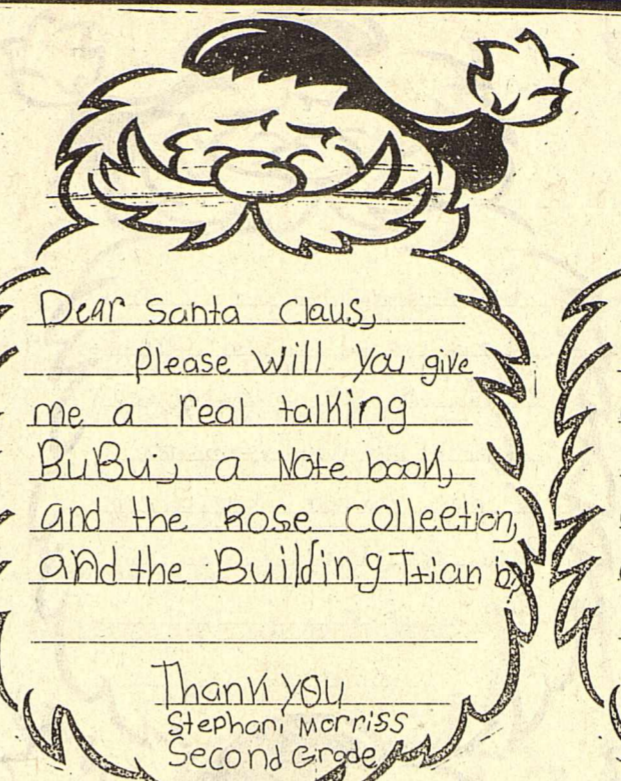 Dear Santa Claus,
Please will you give
me a real talking
BuBu, a Note book,
and the Rose Collection,
and the Building
Thank you
Stephani Morriss
Second Grade